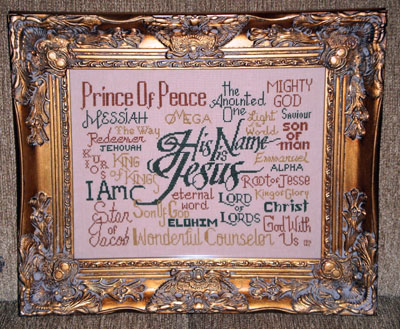 Prince Of Peace
the Anointed One
MIGHTY GOD
MESSIAH
OMEGA
Light of the World
Saviour
The Way
Redeemer
JEHOVAH
son of man
His Name is Jesus
KING of KING
Emmanuel
ALPHA
I Am
Root of Jesse
King of Glory
eternal word
LORD of LORDS
Christ
Star of Jacob
Son Of God
ELOHIM
God With Us
Wonderful Counselor